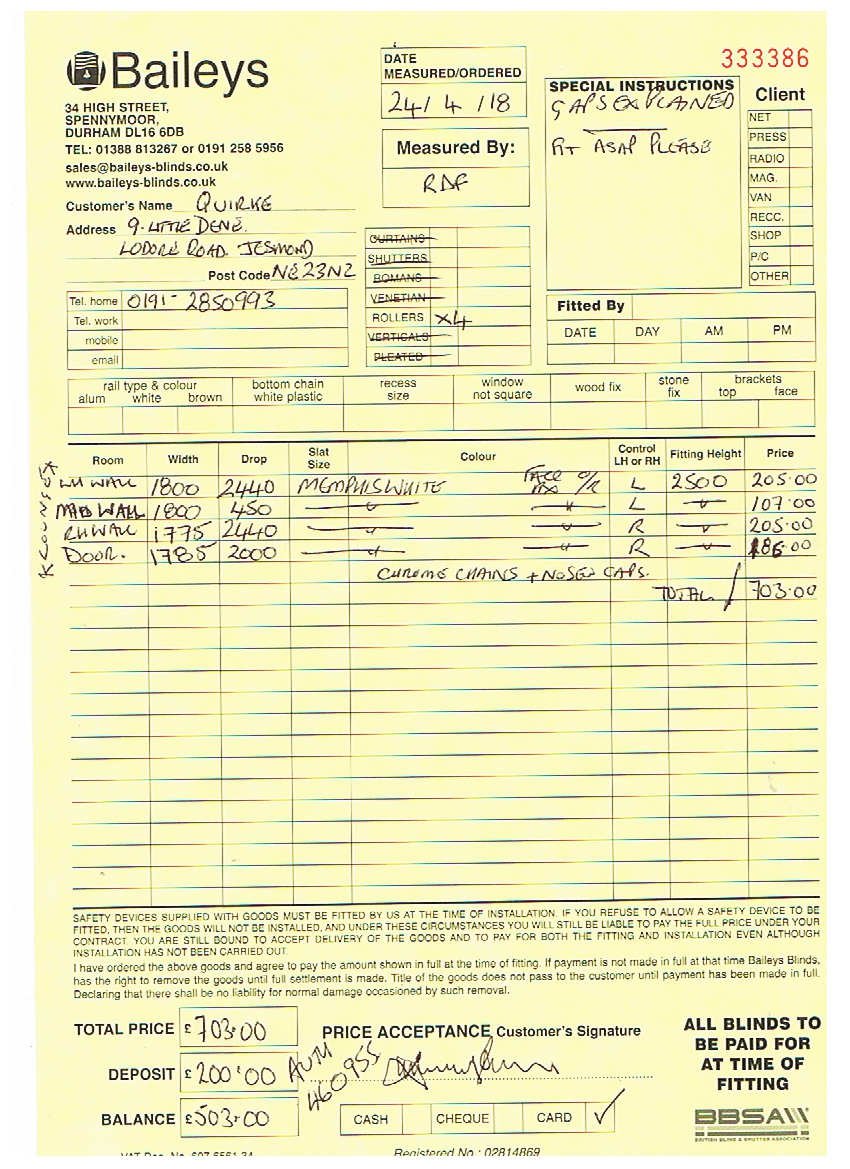 Baileys
34 HIGH STREET,
SPENNYMOOR,
DURHAM DL16 6DB
TEL: 01388 813267 or 0191 258 5956
sales@baileys-blinds.co.uk
www.baileys-blinds.co.uk
DATE
MEASURED/ORDERED
24/4/18
Measured By:
RDF
333386
SPECIAL INSTRUCTIONS
GAPS EXPLAINED
FIT ASAP PLEASE
Client
NET
PRESS
RADIO
MAG.
VAN
RECC.
SHOP
P/C
OTHER
Customer's Name QUIRKE
Address 9. LITTLE DENE.
LODORE ROAD. JESMOND
Post Code NE23NZ
Tel. home 0191- 2850993
Tel. work
mobile
email
CURTAINS
SHUTTERS
ROMANS
VENETIAN
ROLLERS X4
VERTICALS
PLEATED
Fitted By
DATE DAY AM PM
rail type & colour
alum white brown
bottom chain
white plastic
recess
size
window
not square
wood fix
stone
fix
brackets
top face
Room Width Drop Slat Size Colour Control LH or RH Fitting Height Price
LH WALL 1800 2440 MEMPHIS WHITE FACE FIX O/R L 2500 205.00
MID WALL 1800 450 L 107.00
RH WALL 1775 2440 R 205.00
DOOR. 1785 2000 R 186.00
CHROME CHAINS + NOSED CAPS.
TOTAL / 703.00
SAFETY DEVICES SUPPLIED WITH GOODS MUST BE FITTED BY US AT THE TIME OF INSTALLATION. IF YOU REFUSE TO ALLOW A SAFETY DEVICE TO BE
FITTED, THEN THE GOODS WILL NOT BE INSTALLED, AND UNDER THESE CIRCUMSTANCES YOU WILL STILL BE LIABLE TO PAY THE FULL PRICE UNDER YOUR
CONTRACT. YOU ARE STILL BOUND TO ACCEPT DELIVERY OF THE GOODS AND TO PAY FOR BOTH THE FITTING AND INSTALLATION EVEN ALTHOUGH
INSTALLATION HAS NOT BEEN CARRIED OUT.
I have ordered the above goods and agree to pay the amount shown in full at the time of fitting. If payment is not made in full at that time Baileys Blinds,
has the right to remove the goods until full settlement is made. Title of the goods does not pass to the customer until payment has been made in full.
Declaring that there shall be no liability for normal damage occasioned by such removal.
TOTAL PRICE £703.00
DEPOSIT £200.00
BALANCE £503.00
AUTH
460955
PRICE ACCEPTANCE Customer's Signature
CASH CHEQUE CARD ✓
ALL BLINDS TO
BE PAID FOR
AT TIME OF
FITTING
BBSA
BRITISH BLIND & SHUTTER ASSOCIATION
VAT Reg. No. 607 6561 34
Registered No : 02814869